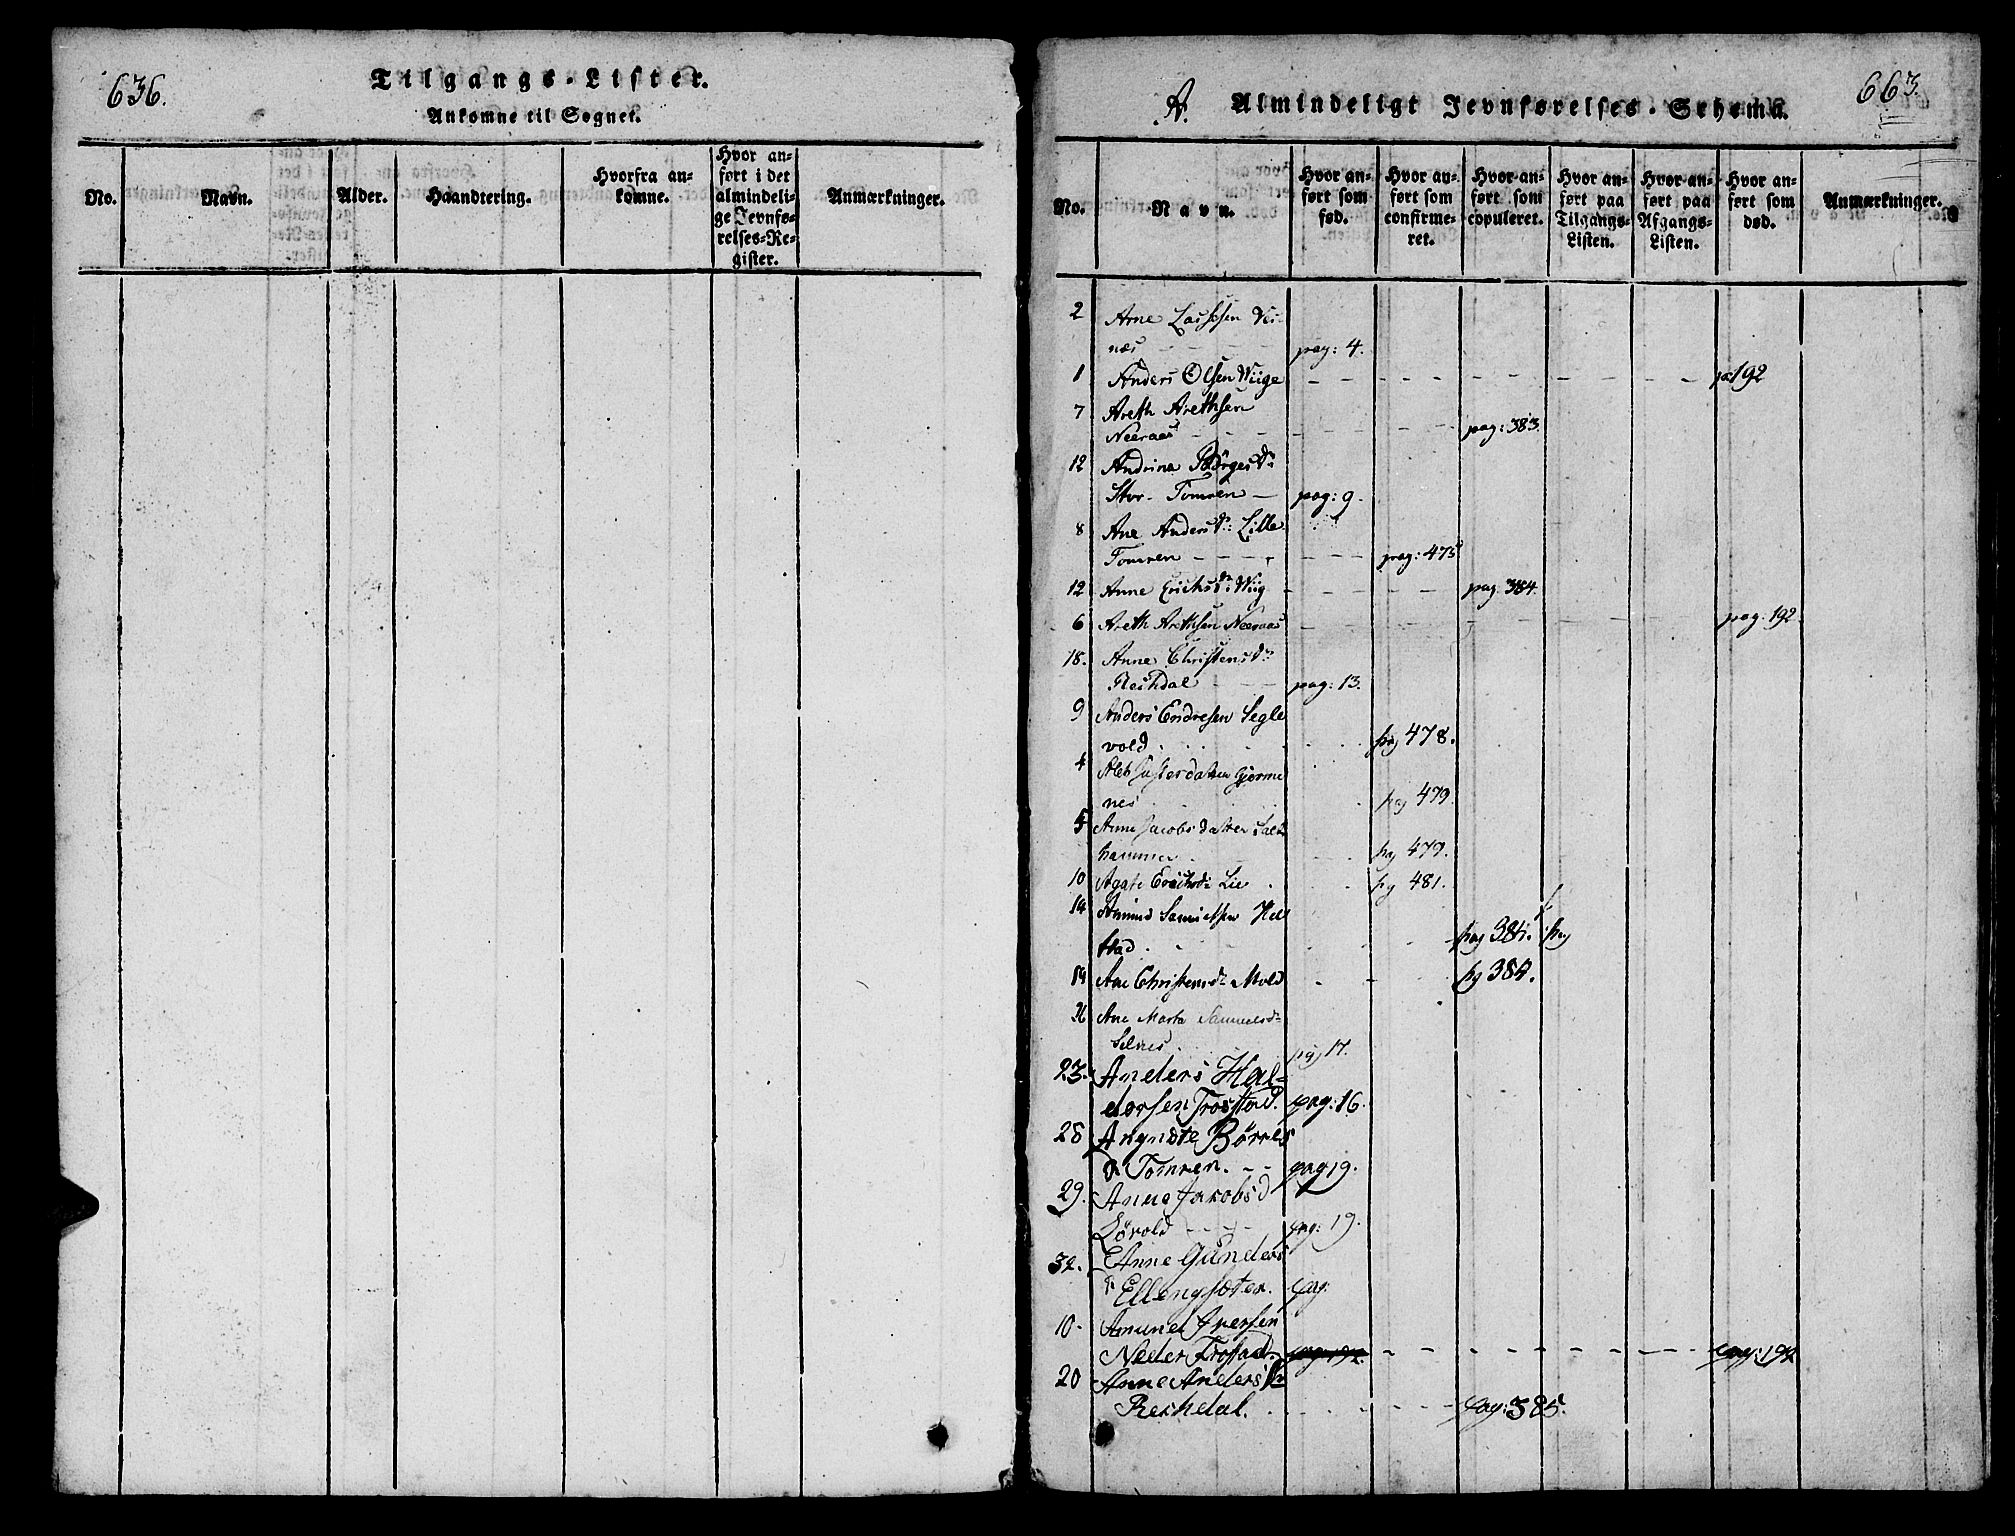 636.
Tilgangs-Lister.
Ankomne til Sognet.
No.
Navn.
Alder.
Haandtering.
Hvorfra an-
komne.
Hvor an-
ført i det
almindeli-
ge Jevnfø-
relses-Re-
gister.
Anmærkninger.
663.
A. Almindeligt Jevnførelses-Schema.
No.
Navn.
Hvor an-
ført som
fød.
Hvor an-
ført som
confirme-
ret.
Hvor an-
ført som
copuleret.
Hvor an-
ført paa
Tilgangs-
Listen.
Hvor an-
ført paa
Afgangs-
Listen.
Hvor an-
ført som
død.
Anmærkninger.
2 Arne Lassesen Vis-
næs pag: 4.
1 Anders Olsen Wiige pa: 192
7 Areth Arethsen
Neeraas pag: 383.
12 Andrina Børges Dr:
Stor-Tomren pag: 9.
8 Ane Anders Dr: Lille
Tomren pag: 475
12 Anne Erichs Dr: Wiig pag. 384.
6 Areth Arethsen Neeraas pag. 192.
18. Anne Christens Dr:
Reshdal pag: 13.
9 Anders Endresen Segle
vold pag 478.
4 datter Gjerme
nes pag 479.
5 Anne Jacobs datter Salt
hammer pag 479.
10 Agate Erichsd: Lie pag 481.
14 Amund Samuelsen Hel
stad pag 384. pag
14 Ane Christensd: Mold pg 384.
26 Ane Marta Samuelsd:
Selnes pag 17.
23. Anders Hal-
dorsen Trosstad. pag: 16.
28 Anyndte Børres
Dr Tomren. pag 19.
29. Anne Jakobs d
Lövold pag: 19.
32. Anne Gunders
dr Ellengsæter. pag:
10. Amund Iversen
Neder Trostad. pag: 192
20 Anne Anders Dr
Reshdal. pag: 385.